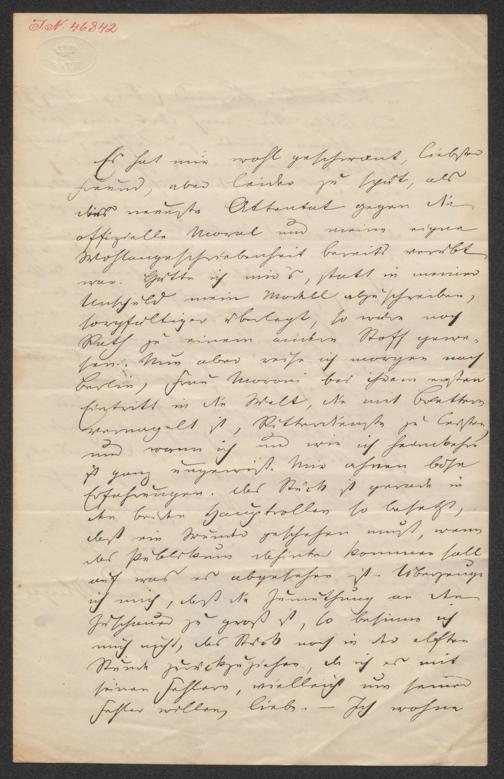 J.N. 46842
Es hat mir wohl geschwant, liebster
Freund, aber leider zu spät, als
dies neueste Attentat gegen die
offizielle Moral und meine eigne
Wohlangeschriebenheit bereits verübt
war. Hätte ich mir's, statt in meiner
Unschuld mein Modell abzuschreiben,
sorgfältiger überlegt, so wäre noch
Rath zu einem andern Stoff gewe-
sen. Nun aber reise ich morgen nach
Berlin, Frau Moroni bei ihrem ersten
Eintritt in die Welt, die mit Brettern
vernagelt ist, Ritterdienste zu leisten
und wann ich und wie ich heimkehre
ist ganz ungewiß. Mir ahnen böse
Erfahrungen. Das Stück ist gerade in
den beiden Hauptrollen so besetzt,
daß ein Wunder geschehen muß, wenn
das Publikum dahinter kommen soll
auf was es abgesehen ist. Überzeuge
ich mich, daß die Zumuthung an den
Zuschauer zu groß ist, so besinne ich
mich nicht, das Stück noch in der elften
Stunde zurückzuziehen, da ich es mit
seinen Fehlern, vielleicht um seiner
Fehler willen, liebe. — Ich wohne